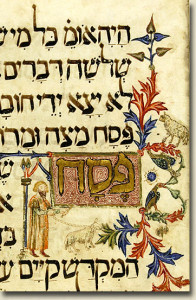 היה אומ' כל מי ש
שלשה דברים
לא יצא ידי חוב
פסח מצה ומרו
פסח
המקדש קיים ע